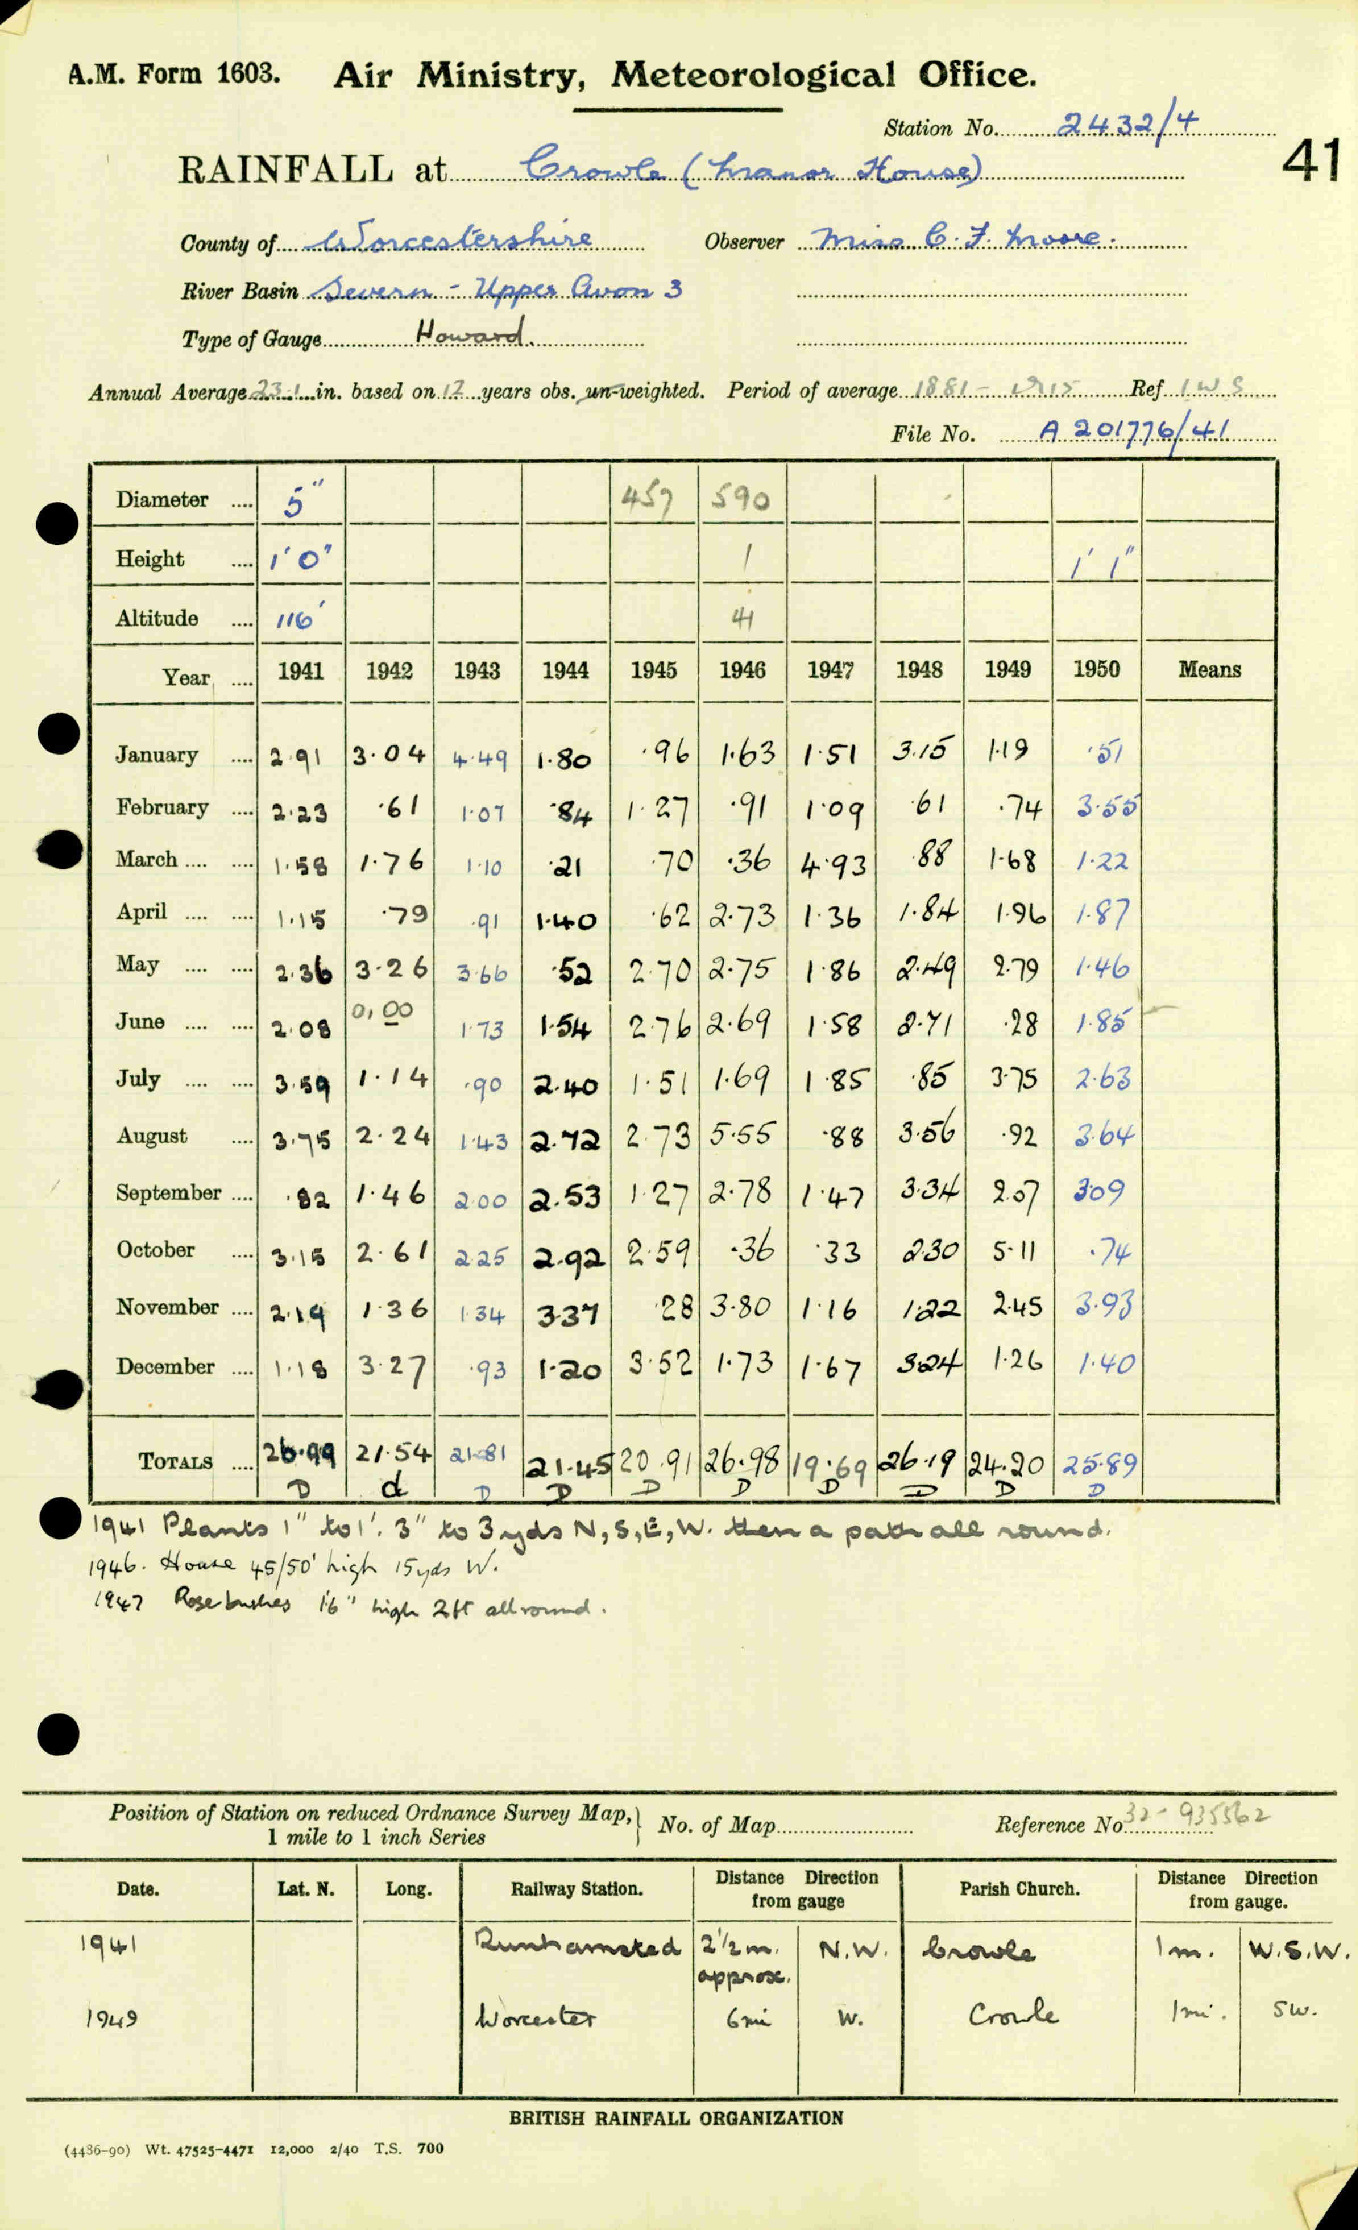 A.M. Form 1603. Air Ministry, Meteorological Office.
Station No. 2432/4
41
RAINFALL at Crowle (Manor House)
County of Worcestershire Observer Miss C. F. Moore.
River Basin Severn - Upper Avon 3
Type of Gauge Howard.
Annual Average 23.1 in. based on 12 years obs. un-weighted. Period of average 1881 - 1915 Ref I W S
File No. A 201776/41
Diameter .... 5" 457 590
Height .... 1' 0" 1 1' 1"
Altitude .... 116' 41
Year .... 1941 1942 1943 1944 1945 1946 1947 1948 1949 1950 Means
January .... 2.91 3.04 4.49 1.80 .96 1.63 1.51 3.15 1.19 .51
February .... 2.23 .61 1.07 .84 1.27 .91 1.09 .61 .74 3.55
March .... .... 1.58 1.76 1.10 .21 .70 .36 4.93 .88 1.68 1.22
April .... .... 1.15 .79 .91 1.40 .62 2.73 1.36 1.84 1.96 1.87
May .... .... 2.36 3.26 3.66 .52 2.70 2.75 1.86 2.49 2.79 1.46
June .... .... 2.08 0.00 1.73 1.54 2.76 2.69 1.58 2.71 .28 1.85
July .... .... 3.59 1.14 .90 2.40 1.51 1.69 1.85 .85 3.75 2.63
August .... 3.75 2.24 1.43 2.72 2.73 5.55 .88 3.56 .92 3.64
September .... .82 1.46 2.00 2.53 1.27 2.78 1.47 3.34 2.07 3.09
October .... 3.15 2.61 2.25 2.92 2.59 .36 .33 2.30 5.11 .74
November .... 2.19 1.36 1.34 3.37 .28 3.80 1.16 1.22 2.45 3.93
December .... 1.18 3.27 .93 1.20 3.52 1.73 1.67 3.24 1.26 1.40
TOTALS .... 26.99 21.54 21.81 21.45 20.91 26.98 19.69 26.19 24.20 25.89
D d D D D D D D D D
1941 Plants 1" to 1'. 3" to 3 yds N, S, E, W. then a path all round.
1946. House 45/50' high 15yds W.
1947 Rose bushes 1'6" high 2ft all round.
Position of Station on reduced Ordnance Survey Map, 1 mile to 1 inch Series } No. of Map Reference No 32-935562
Date. Lat. N. Long. Railway Station. Distance Direction from gauge Parish Church. Distance Direction from gauge.
1941 Dunhamsted 2½ m. approx. N.W. Crowle 1 m. W.S.W.
1949 Worcester 6 mi W. Crowle 1 mi. SW.
BRITISH RAINFALL ORGANIZATION
(4436-90) Wt. 47525-4471 12,000 2/40 T.S. 700